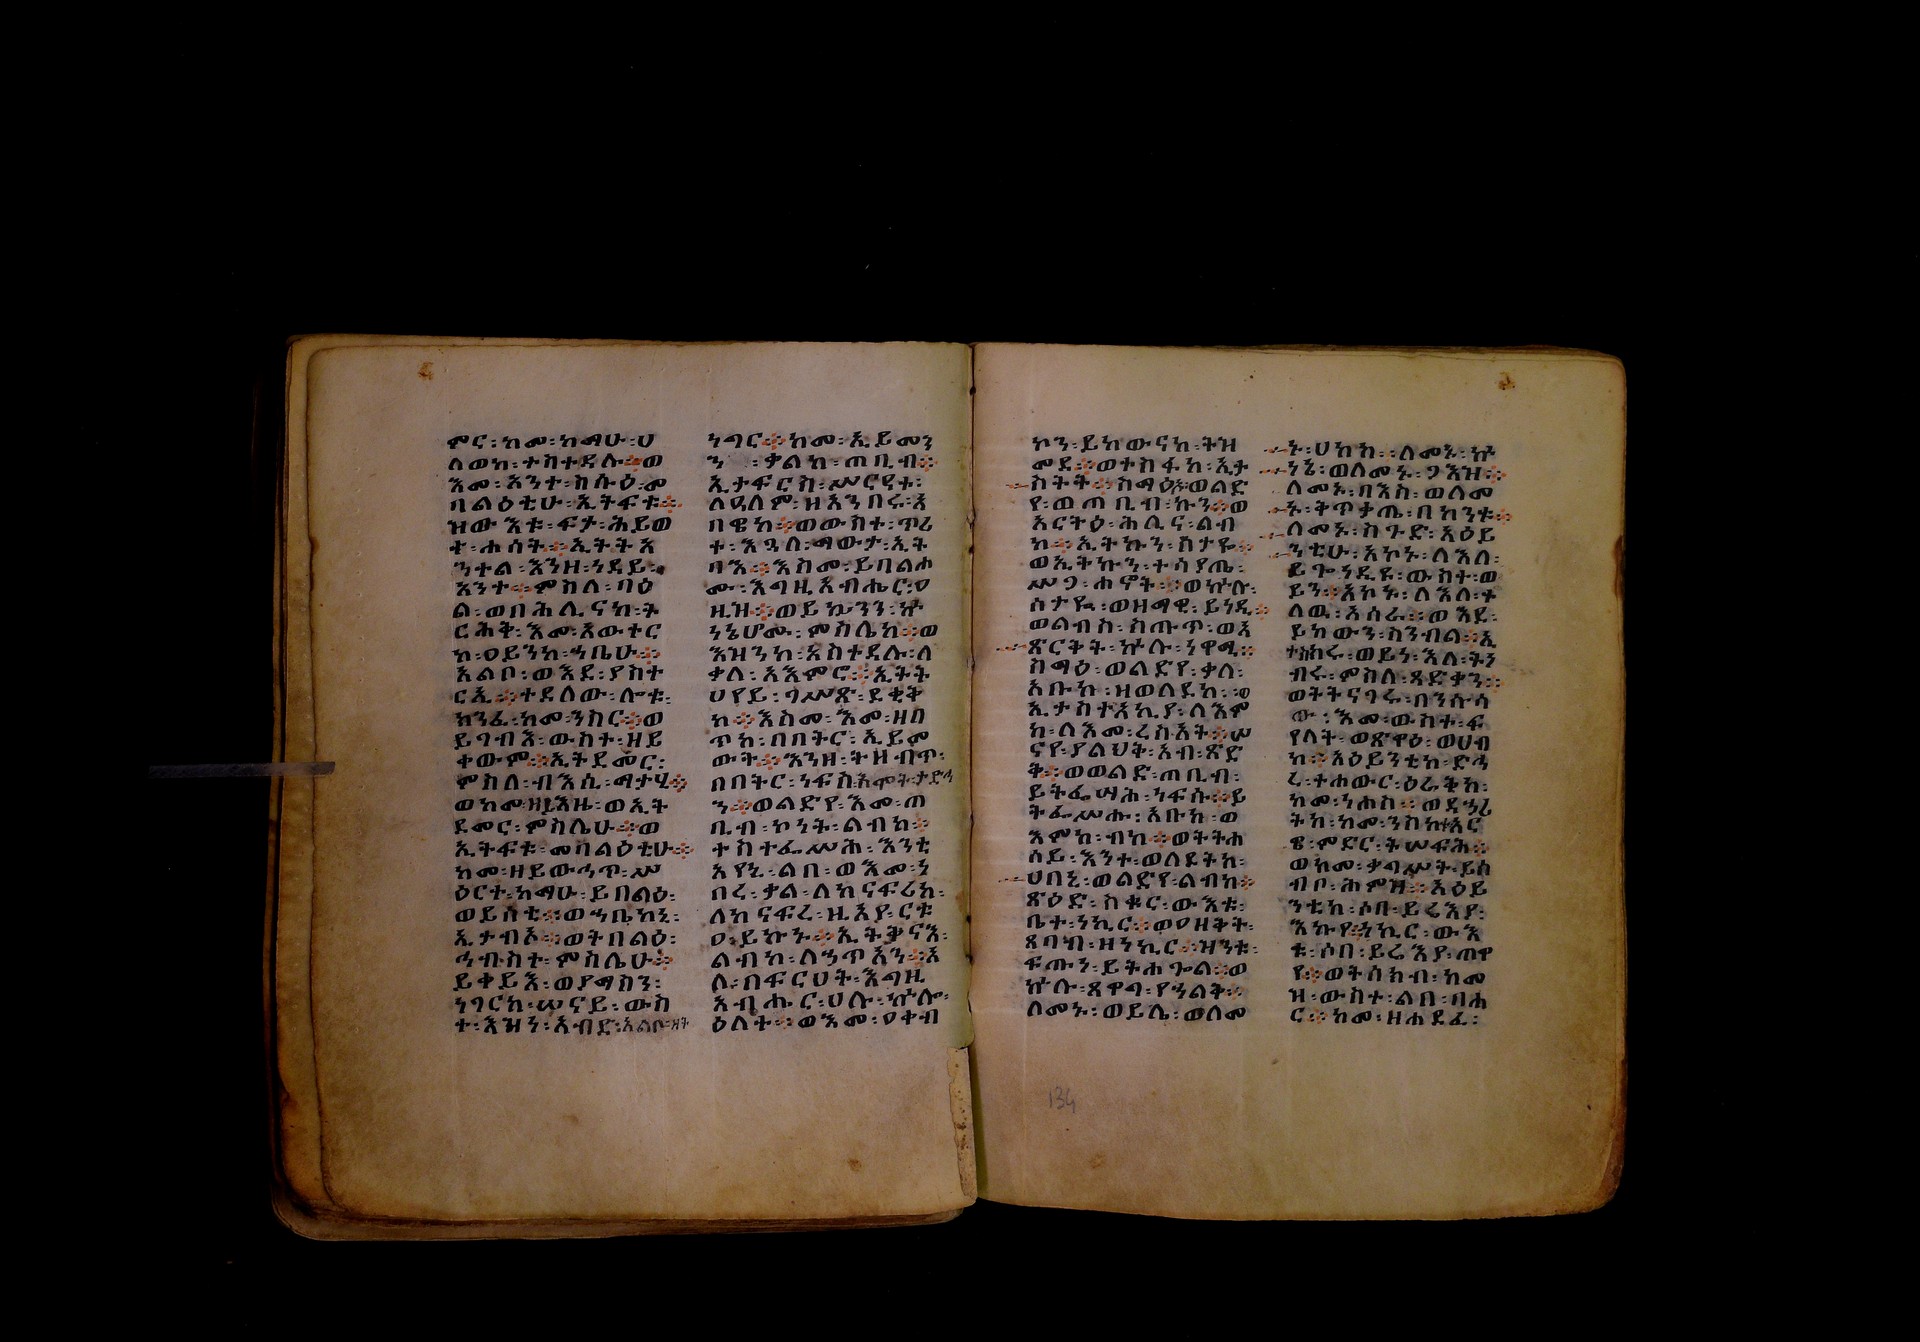 ምር፡ከመ፡ከማሁ፡ሀ
ለወከ፡ተስተዳሉ።ወ
እመ፡አንተ፡ከሱዕ፡መ
ባልዕቲሁ፡ኢትፍቱ።
ዝውእቱ፡ፍታ፡ሕይወ
ተ፡ሐሰት።ኢትትአ
ንተል፡እንዘ፡ነዳይ፡
አንተ።ምስለ፡ባዕ
ል፡ወበሕሊናከ፡ት
ርሕቅ፡እመ፡አውተር
ከ፡ዐይንከ፡ኀቤሁ።
አልቦ፡ወእደ፡ያስት
ርኢ።ተደለው፡ሎቱ፡
ክንፈ፡ከመ፡ንስር።ወ
ይገብእ፡ውስተ፡ዘይ
ቀውም።ኢትደመር፡
ምስለ፡ብእሲ፡ማታሂ።
ወከመ፡ዘይእዜ፡ወኢት
ደመር፡ምስሌሁ።ወ
ኢትፍቱ፡መባልዕቲሁ።
ከመ፡ዘይውኅጥ፡ሥ
ዕርተ፡ከማሁ፡ይበልዕ፡
ወይሰቲ።ወኀቤከኒ፡
ኢታብኦ።ወትበልዕ፡
ኅብስተ፡ምስሌሁ።
ይቀይእ፡ወያማስን፡
ነገርከ፡ሠናይ፡ውስ
ተ፡እዝነ፡አብድ፡አልቦ፡ዘት
ነግር።ከመ፡ኢይመን
ን፡ቃልከ፡ጠቢብ።
ኢታፍርስ፡ሥርዓተ፡
ለዓለም፡ዘአንበሩ፡አ
በዊከ።ወውስተ፡ጥሪ
ተ፡እጓለ፡ማውታ፡ኢት
ባእ።እስመ፡ይባልሖ
ሙ፡እግዚአብሔር፡ዐ
ዚዝ።ወይኴንን፡ኵ
ነኔሆሙ፡ምስሌከ።ወ
እዝንከ፡አስተደሉ፡ለ
ቃለ፡አእምሮ።ኢትት
ሀየይ፡ገሥጾ፡ደቂቅ
ከ።እስመ፡እመ፡ዘበ
ጥከ፡በበትር፡ኢይመ
ውት።እንዘ፡ትዘብጥ፡
በበትር፡ነፍሰ፡እሞት፡ታድኅ
ን።ወልድየ፡እመ፡ጠ
ቢብ፡ኮነት፡ልብከ።
ተስተፌሥሕ፡እንቲ
አየኒ፡ልበ፡ወእመ፡ነ
በረ፡ቃል፡ለከናፍሪከ፡
ለከናፍረ፡ዚአየ፡ርቱ
ዐ፡ይኩኑ።ኢትቅናእ፡
ልብከ፡ለኃጥአን።አ
ላ፡በፍርሀት፡እግዚ
አብሔር፡ሀሉ፡ኵሎ፡
ዕለት።ወእመ፡ዐቀብ
ኮን፡ይከውናከ፡ትዝ
መደ።ወተስፋከ፡ኢት
ስትት።ስማዕኬ፡ወልድ
የ፡ወጠቢብ፡ኩን።ወ
አርትዕ፡ሕሊና፡ልብ
ከ።ኢትኩን፡ሰታዬ።
ወኢትኩን፡ተሳያጤ፡
ሥጋ፡ሐኖት።ወኵሉ፡
ሰታዪ፡ወዘማዊ፡ይነዲ።
ወልብሰ፡ስጡጥ፡ወአ
ጽርቅት፡ኵሉ፡ነዋሚ።
ስማዕ፡ወልድየ፡ቃለ፡
አቡከ፡ዘወለደከ፡ወ
ኢታስተአኪያ፡ለእም
ከ፡ለእመ፡ረስአት።ሠ
ናየ፡ያልህቅ፡አብ፡ጻድ
ቅ።ወወልድ፡ጠቢብ፡
ይትፌሣሕ፡ነፍሱ።ይ
ትፌሥሑ፡አቡከ፡ወ
እምከ፡ብከ።ወትትሐ
ሰይ፡እንተ፡ወለደትከ፡
ሀበኒ፡ወልድየ፡ልብከ።
ጽዕድ፡ስቁር፡ውእቱ፡
ቤተ፡ነኪር።ወዐዘቅት፡
ጸባብ፡ዘነኪር።ዝንቱ፡
ፍጡን፡ይትሐጐል።ወ
ኵሉ፡ጸዋግ፡የኃልቅ።
ለመኑ፡ወይሌ፡ወለመ
ኑ፡ሀከክ።ለመኑ፡ኵ
ነኔ፡ወለመኑ፡ጋእዝ።
ለመኑ፡በእስ፡ወለመ
ኑ፡ቅጥቃጤ፡በከንቱ።
ለመኑ፡ስጉድ፡አዕይ
ንቲሁ፡አኮኑ፡ለእለ፡
ይጐነዲዩ፡ውስተ፡ወ
ይን።አኮኑ፡ለእለ፡ተ
ለዉ፡አሰራ።ወእደ፡
ይከውን፡ስንብል።ኢ
ትስክሩ፡ወይነ፡አላ፡ትን
ብሩ፡ምስለ፡ጻድቃን።
ወትትናገሩ፡በንሱሳ
ው፡እመ፡ውስተ፡ፍ
የላት፡ወጽዋዕ፡ወሀብ
ከ።አዕይንቲከ፡ድኅ
ረ፡ተሐውር፡ዕራቅከ፡
ከመ፡ነሐስ።ወደኃሪ
ትከ፡ከመ፡ንስከ፡አር
ዌ፡ምድር፡ትሠፍሕ።
ወከመ፡ቃባሥት፡ይሰ
ብቦ፡ሕምዝ።አዕይ
ንቲከ፡ሶበ፡ይሬእያ፡
እኩየ።ነኪር፡ውእ
ቱ፡ሶበ፡ይሬእያ፡ጠዋ
የ።ወትሰክብ፡ከመ
ዝ፡ውስተ፡ልበ፡ባሕ
ር።ከመ፡ዘሐደፈ፡
134